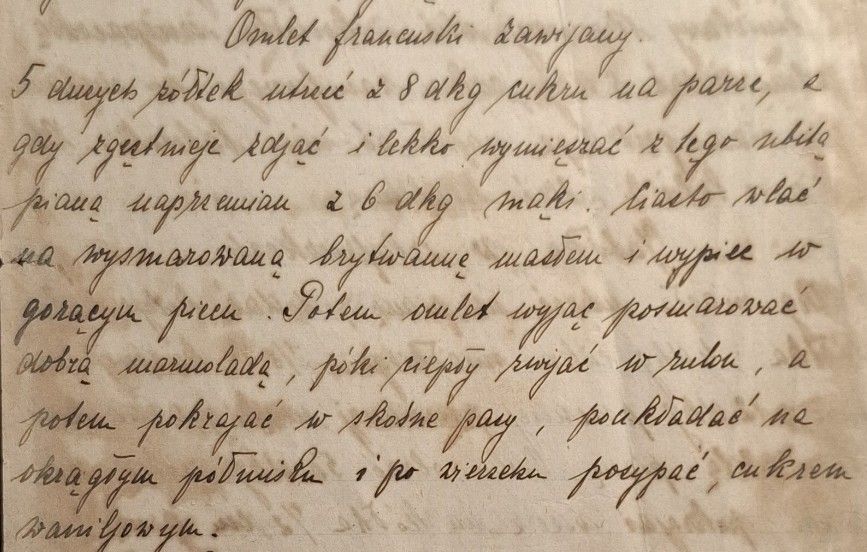 Omlet francuski zawijany.
5 dużych żółtek utrzeć z 8 dkg cukru na parze, a
gdy zgęstnieje zdjąć i lekko wymięszać z tęgo ubitą
pianą naprzemian z 6 dkg mąki. Ciasto wlać
na wysmarowaną brytwannę masłem i wypiec w
gorącym piecu. Potem omlet wyjąć posmarować
dobrą marmoladą, póki ciepły zwijać w rulon, a
potem pokrajać w skośne pasy, poukładać na
okrągłym półmisku i po wierzchu posypać cukrem
waniljowym.